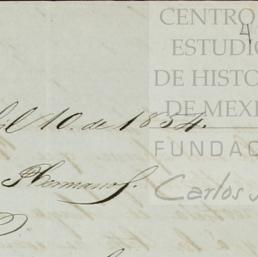 CENTRO
4
ESTUDIO
DE HISTO
DE MEXI
il 10. de 1854.
FUNDAC
Hermanos.
Carlos